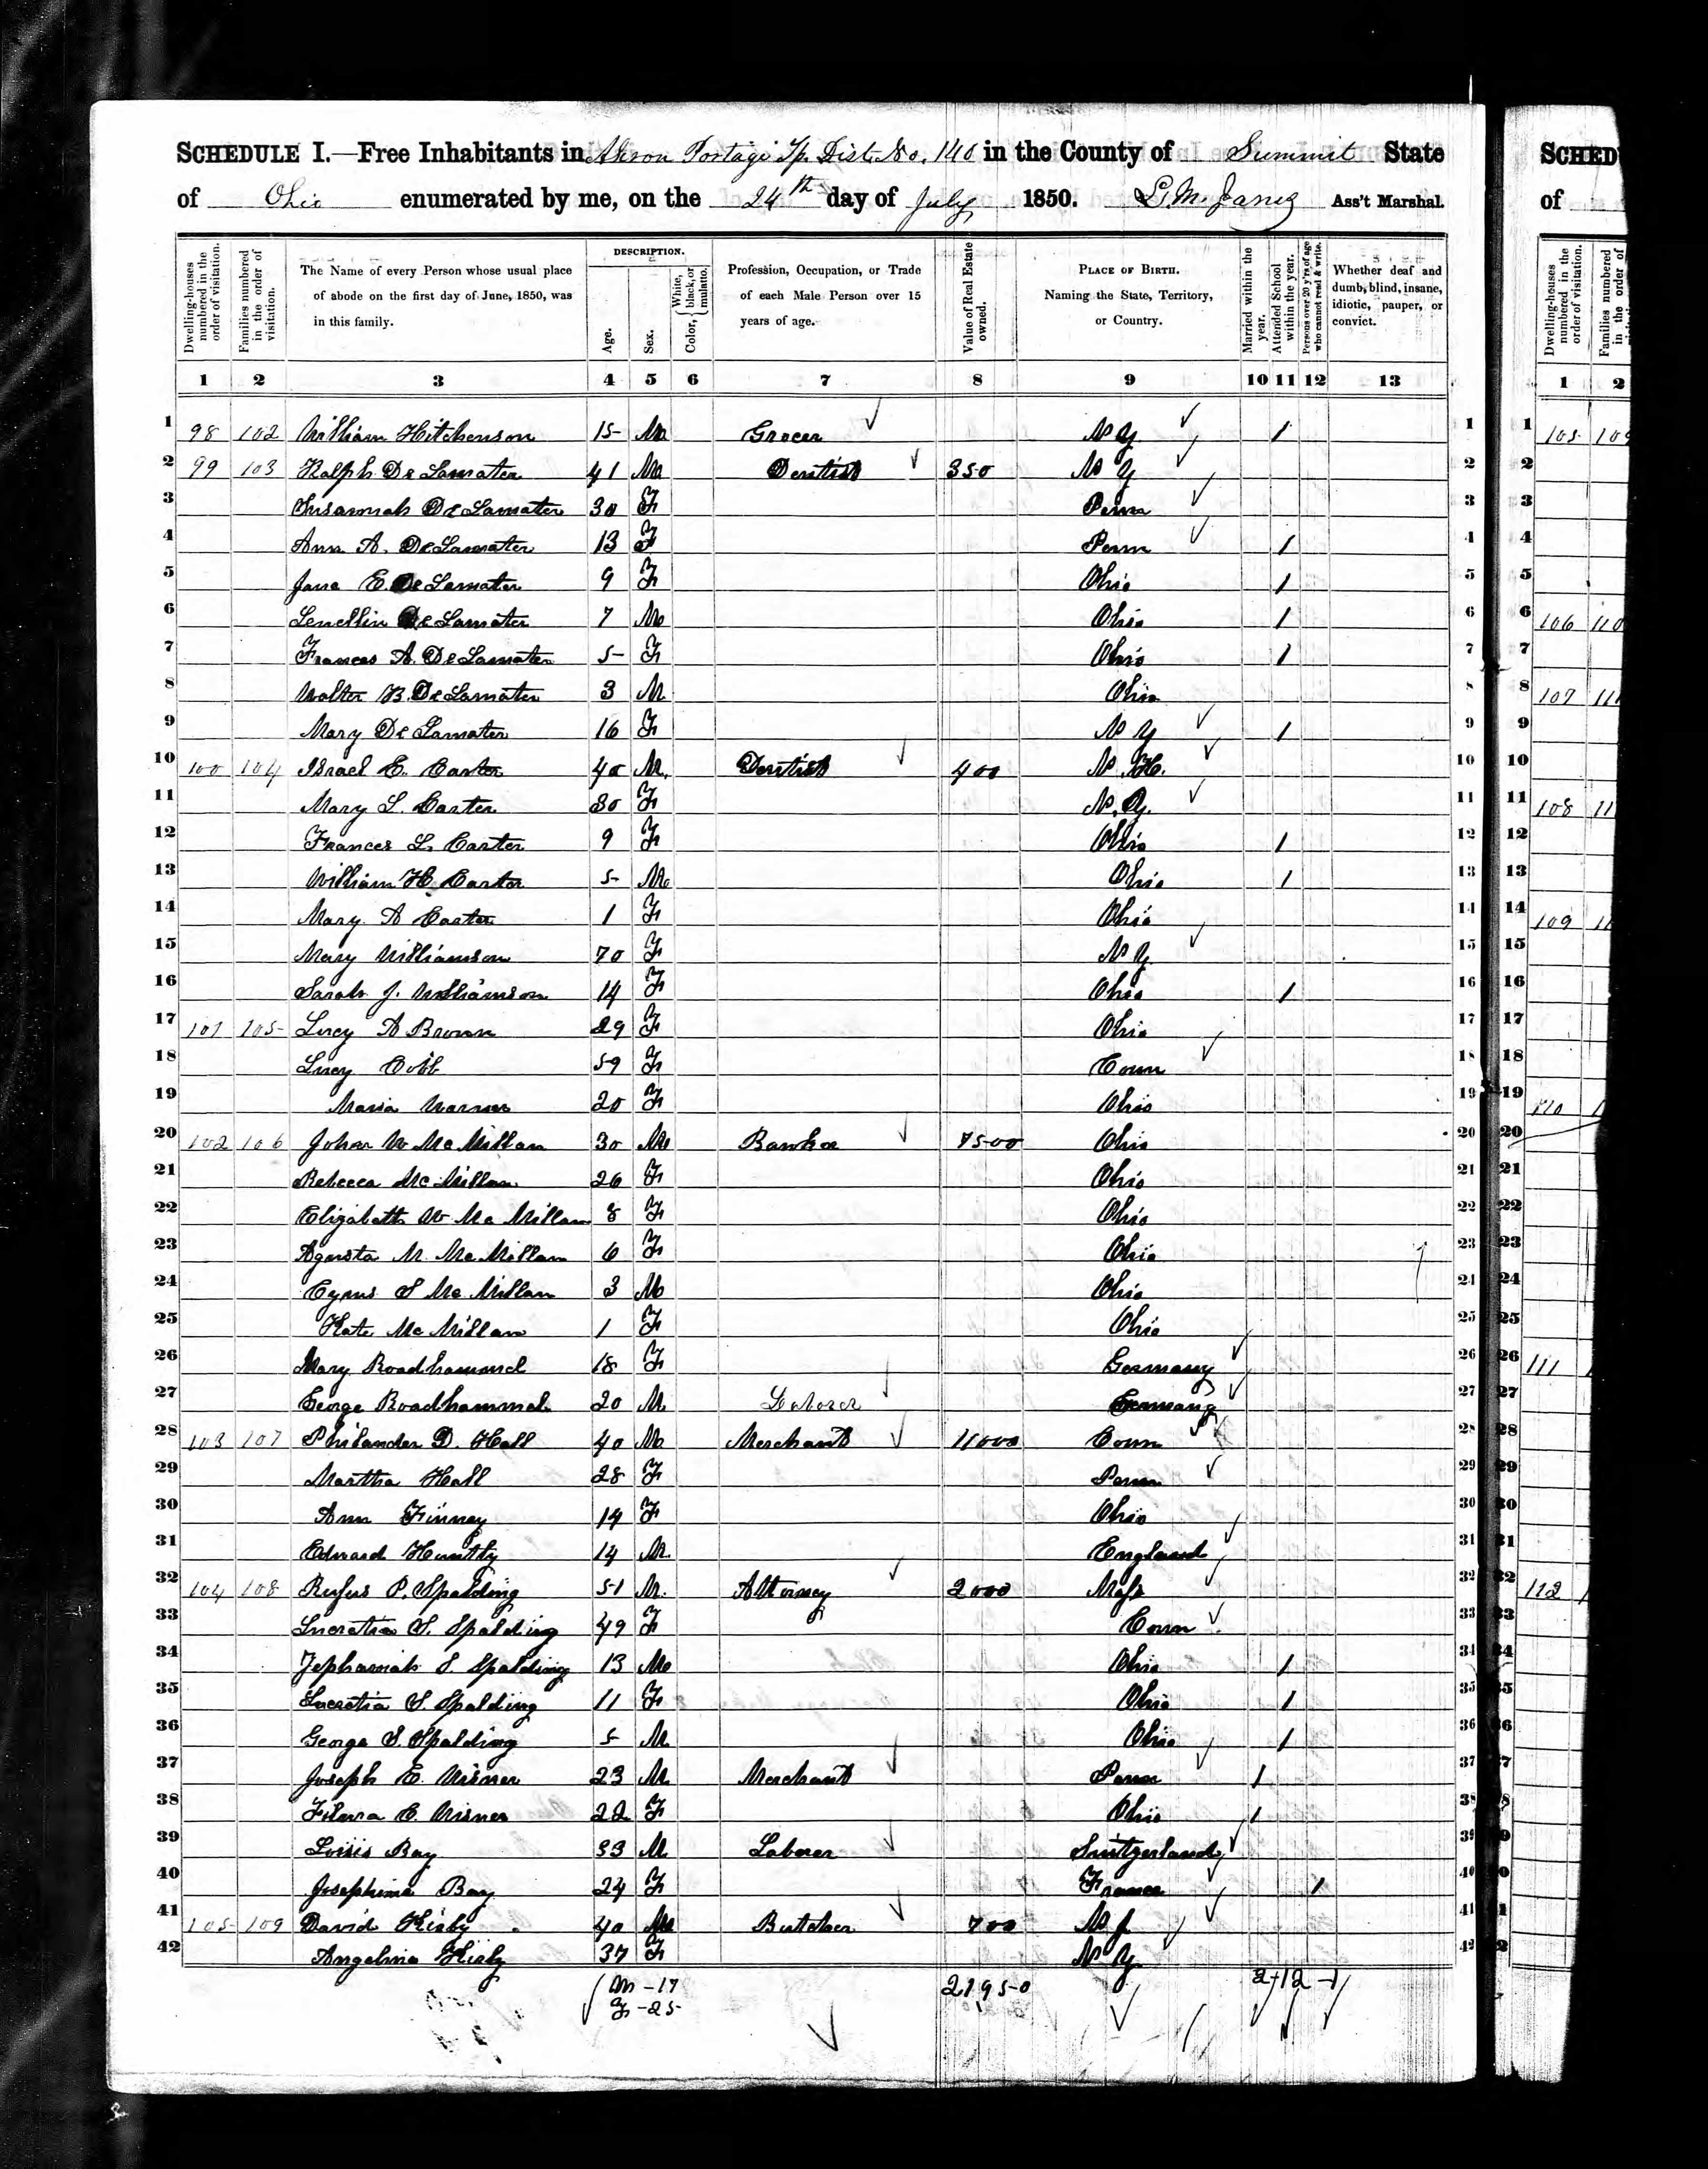 SCHEDULE I.—Free Inhabitants in Akron Portage Tp. Dist. No. 140 in the County of Summit State
of Ohio enumerated by me, on the 24th day of July 1850. Ass't Marshal.
Dwelling-houses numbered in the order of visitation.
Families numbered in the order of visitation.
The Name of every Person whose usual place of abode on the first day of June, 1850, was in this family.
DESCRIPTION.
Age.
Sex.
Color, White, black, or mulatto.
Profession, Occupation, or Trade of each Male Person over 15 years of age.
Value of Real Estate owned.
PLACE OF BIRTH. Naming the State, Territory, or Country.
Married within the year.
Attended School within the year.
Persons over 20 y'rs of age who cannot read & write.
Whether deaf and dumb, blind, insane, idiotic, pauper, or convict.
1 2 3 4 5 6 7 8 9 10 11 12 13
1 98 102 William Hitchenson 15 M Grocer N Y 1 1
2 99 103 Ralph De Lamater 41 M Dentist 350 N Y 2
3 Susannah De Lamater 30 F Penn 3
4 Ann A. De Lamater 13 F Penn 1 4
5 Jane E. De Lamater 9 F Ohio 1 5
6 De Lamater 7 M Ohio 1 6
7 Frances A. De Lamater 5 F Ohio 1 7
8 Walter B. De Lamater 3 M Ohio 8
9 Mary De Lamater 16 F N Y 1 9
10 100 104 Israel E. Carter 40 M. Dentist 400 N. H. 10
11 Mary L. Carter 30 F N. Y. 11
12 Frances L. Carter 9 F Ohio 1 12
13 William H. Carter 5 M Ohio 1 13
14 Mary A Carter 1 F Ohio 14
15 Mary Williamson 70 F N Y 15
16 Sarah J. Williamson 14 F Ohio 1 16
17 101 105 Lucy A Brown 29 F Ohio 17
18 Lucy Cobb 59 F Conn 18
19 Maria Warner 20 F Ohio 19
20 102 106 John W McMillan 30 M Banker 7500 Ohio 20
21 Rebecca McMillan 26 F Ohio 21
22 Elizabeth W McMillan 8 F Ohio 22
23 Agusta M. McMillan 6 F Ohio 23
24 Cyrus S McMillan 3 M Ohio 24
25 Kate McMillan 1 F Ohio 25
26 Mary Roadhammel 18 F Germany 26
27 George Roadhammel 20 M. Laborer Germany 27
28 103 107 Philander D. Hall 40 M Merchant 11000 Conn 28
29 Martha Hall 28 F Penn 29
30 Ann Finney 14 F Ohio 30
31 Edward Huntly 14 M. England 31
32 104 108 Rufus P. Spalding 51 M. Attorney 2000 Mass 32
33 Lucretia S. Spalding 49 F Conn 33
34 S. Spalding 13 M Ohio 1 34
35 Lucretia S. Spalding 11 F Ohio 1 35
36 George S. Spalding 5 M Ohio 1 36
37 Joseph E. Wisner 23 M Merchant Penn 1 37
38 E. Wisner 22 F Ohio 1 38
39 Louis Bay 33 M Laborer Switzerland 39
40 Josephine Bay 24 F France 1 40
41 105 109 David Kirby 40 M Butcher 700 N J 41
42 Angelina Kirby 37 F N Y 42
M - 17
F - 25
21950
2 12 1
SCHED
of
Dwelling-houses numbered in the order of visitation.
Families numbered in the order of
1 2
1 105
2
3
4
5
6 106 110
7
8 107 111
9
10
11 108 11
12
13
14 109 11
15
16
17
18
19 110
20
21
22
23
24
25
26 111
27
28
29
30
31
32 112